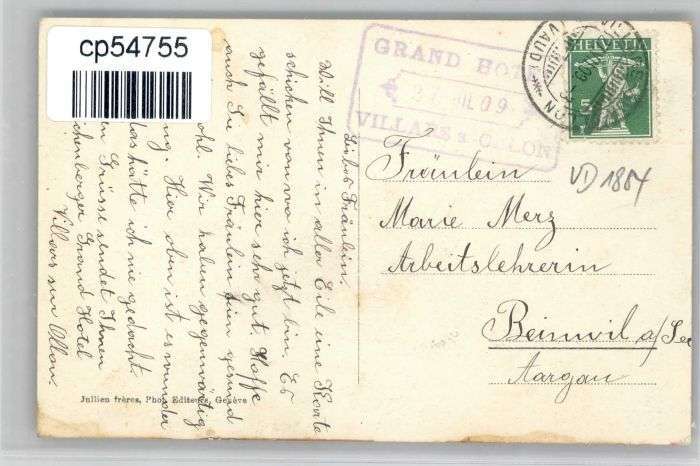 cp54755
GRAND HOTEL
27 JUIL 09
VILLARS s. OLLON
HELVETIA
5
(VAUD)
VD 1884
Fräulein
Marie Merz
Arbeitslehrerin
Beinwil a/See
Aargau
Liebes Fräulein.
Will Ihnen in aller Eile eine Karte
schicken von wo ich jetzt bin, Es
gefällt mir hier sehr gut Hoffe
auch Sie liebes Fräulein sein gesund
ohl. Wir haben gegenwärtig
ng. Hier oben ist es wunder
das hätte ich nie gedacht.
en Grüsse sendet Ihnen
ichenberger Grand Hotel
Villars sur Ollon.
Jullien frères, Phot. Editeurs, Genève